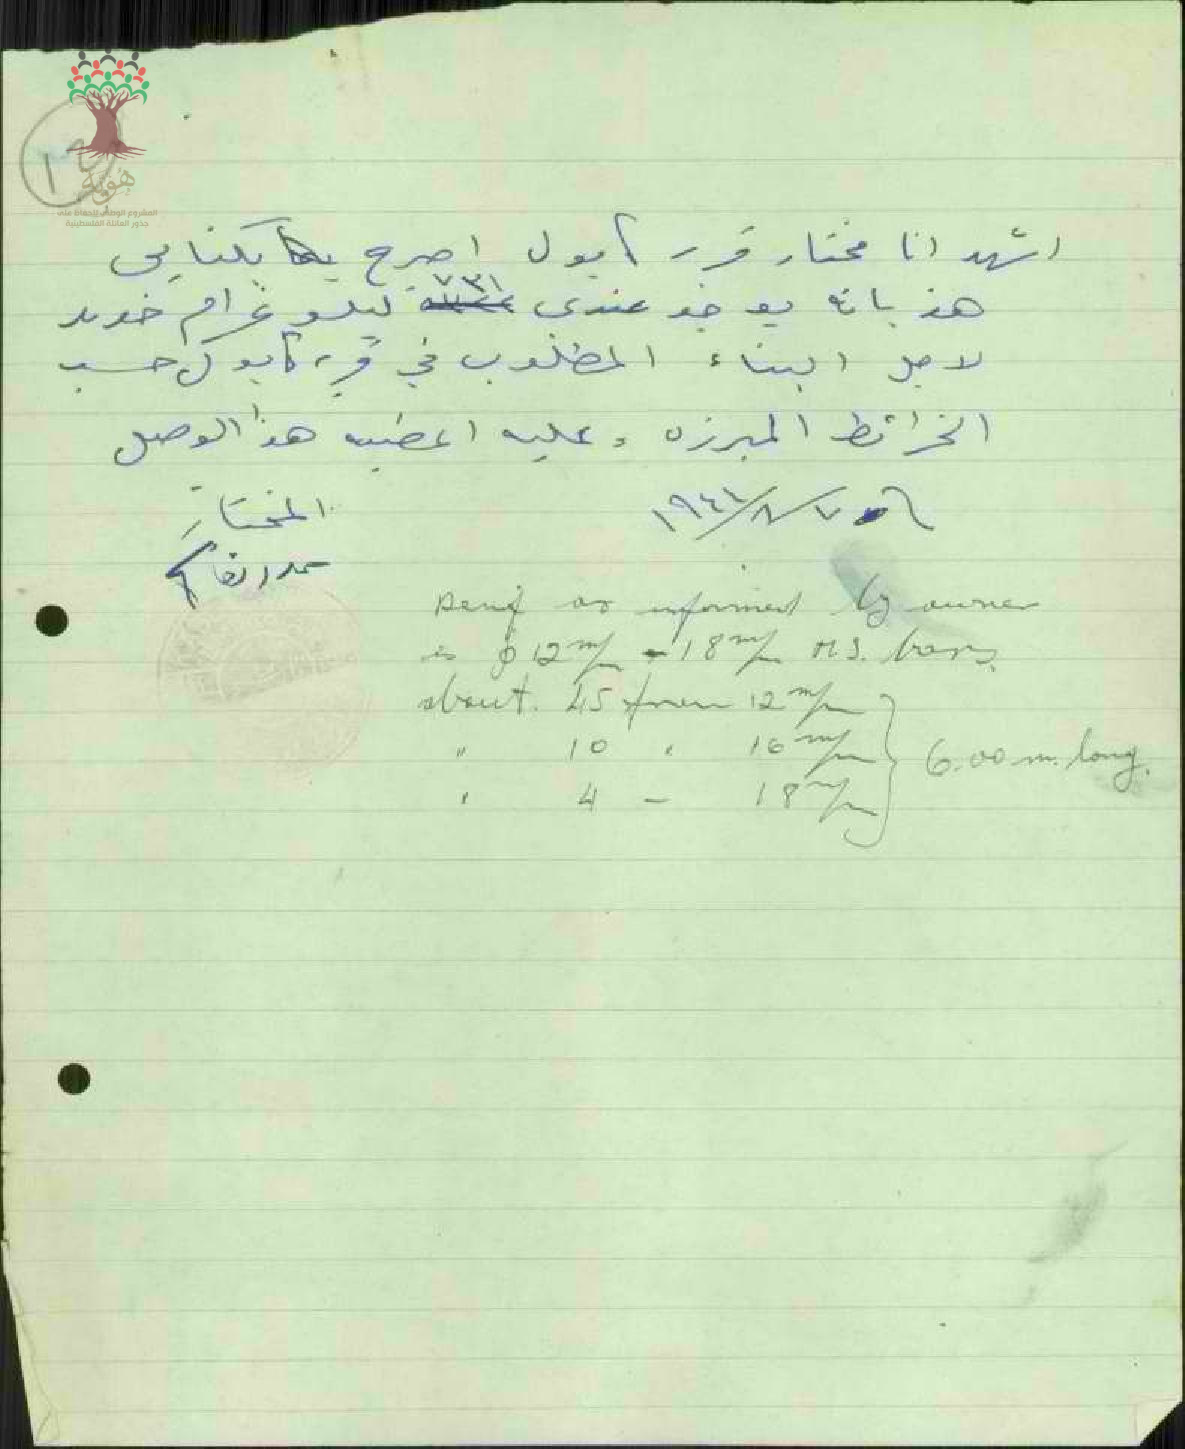 هوية
المشروع الوطني للحفاظ على
جذور العائلة الفلسطينية
اشهد انا مختار قرية كابول اصرح بكتابي
هذا بانه يوجد عندي ٧٣١ كيلو غرام حديد
لاجل البناء المطلوب في قرية كابول حسب
الخرائط المبرزه وعليه اعطيت هذا الوصل
المختار
as informed by owner
is ϕ 12 m/m - 18 m/m M.S. bars.
about 45 12 m/m
" 10 " 16 m/m 6.00 m. long.
" 4 - 18 m/m